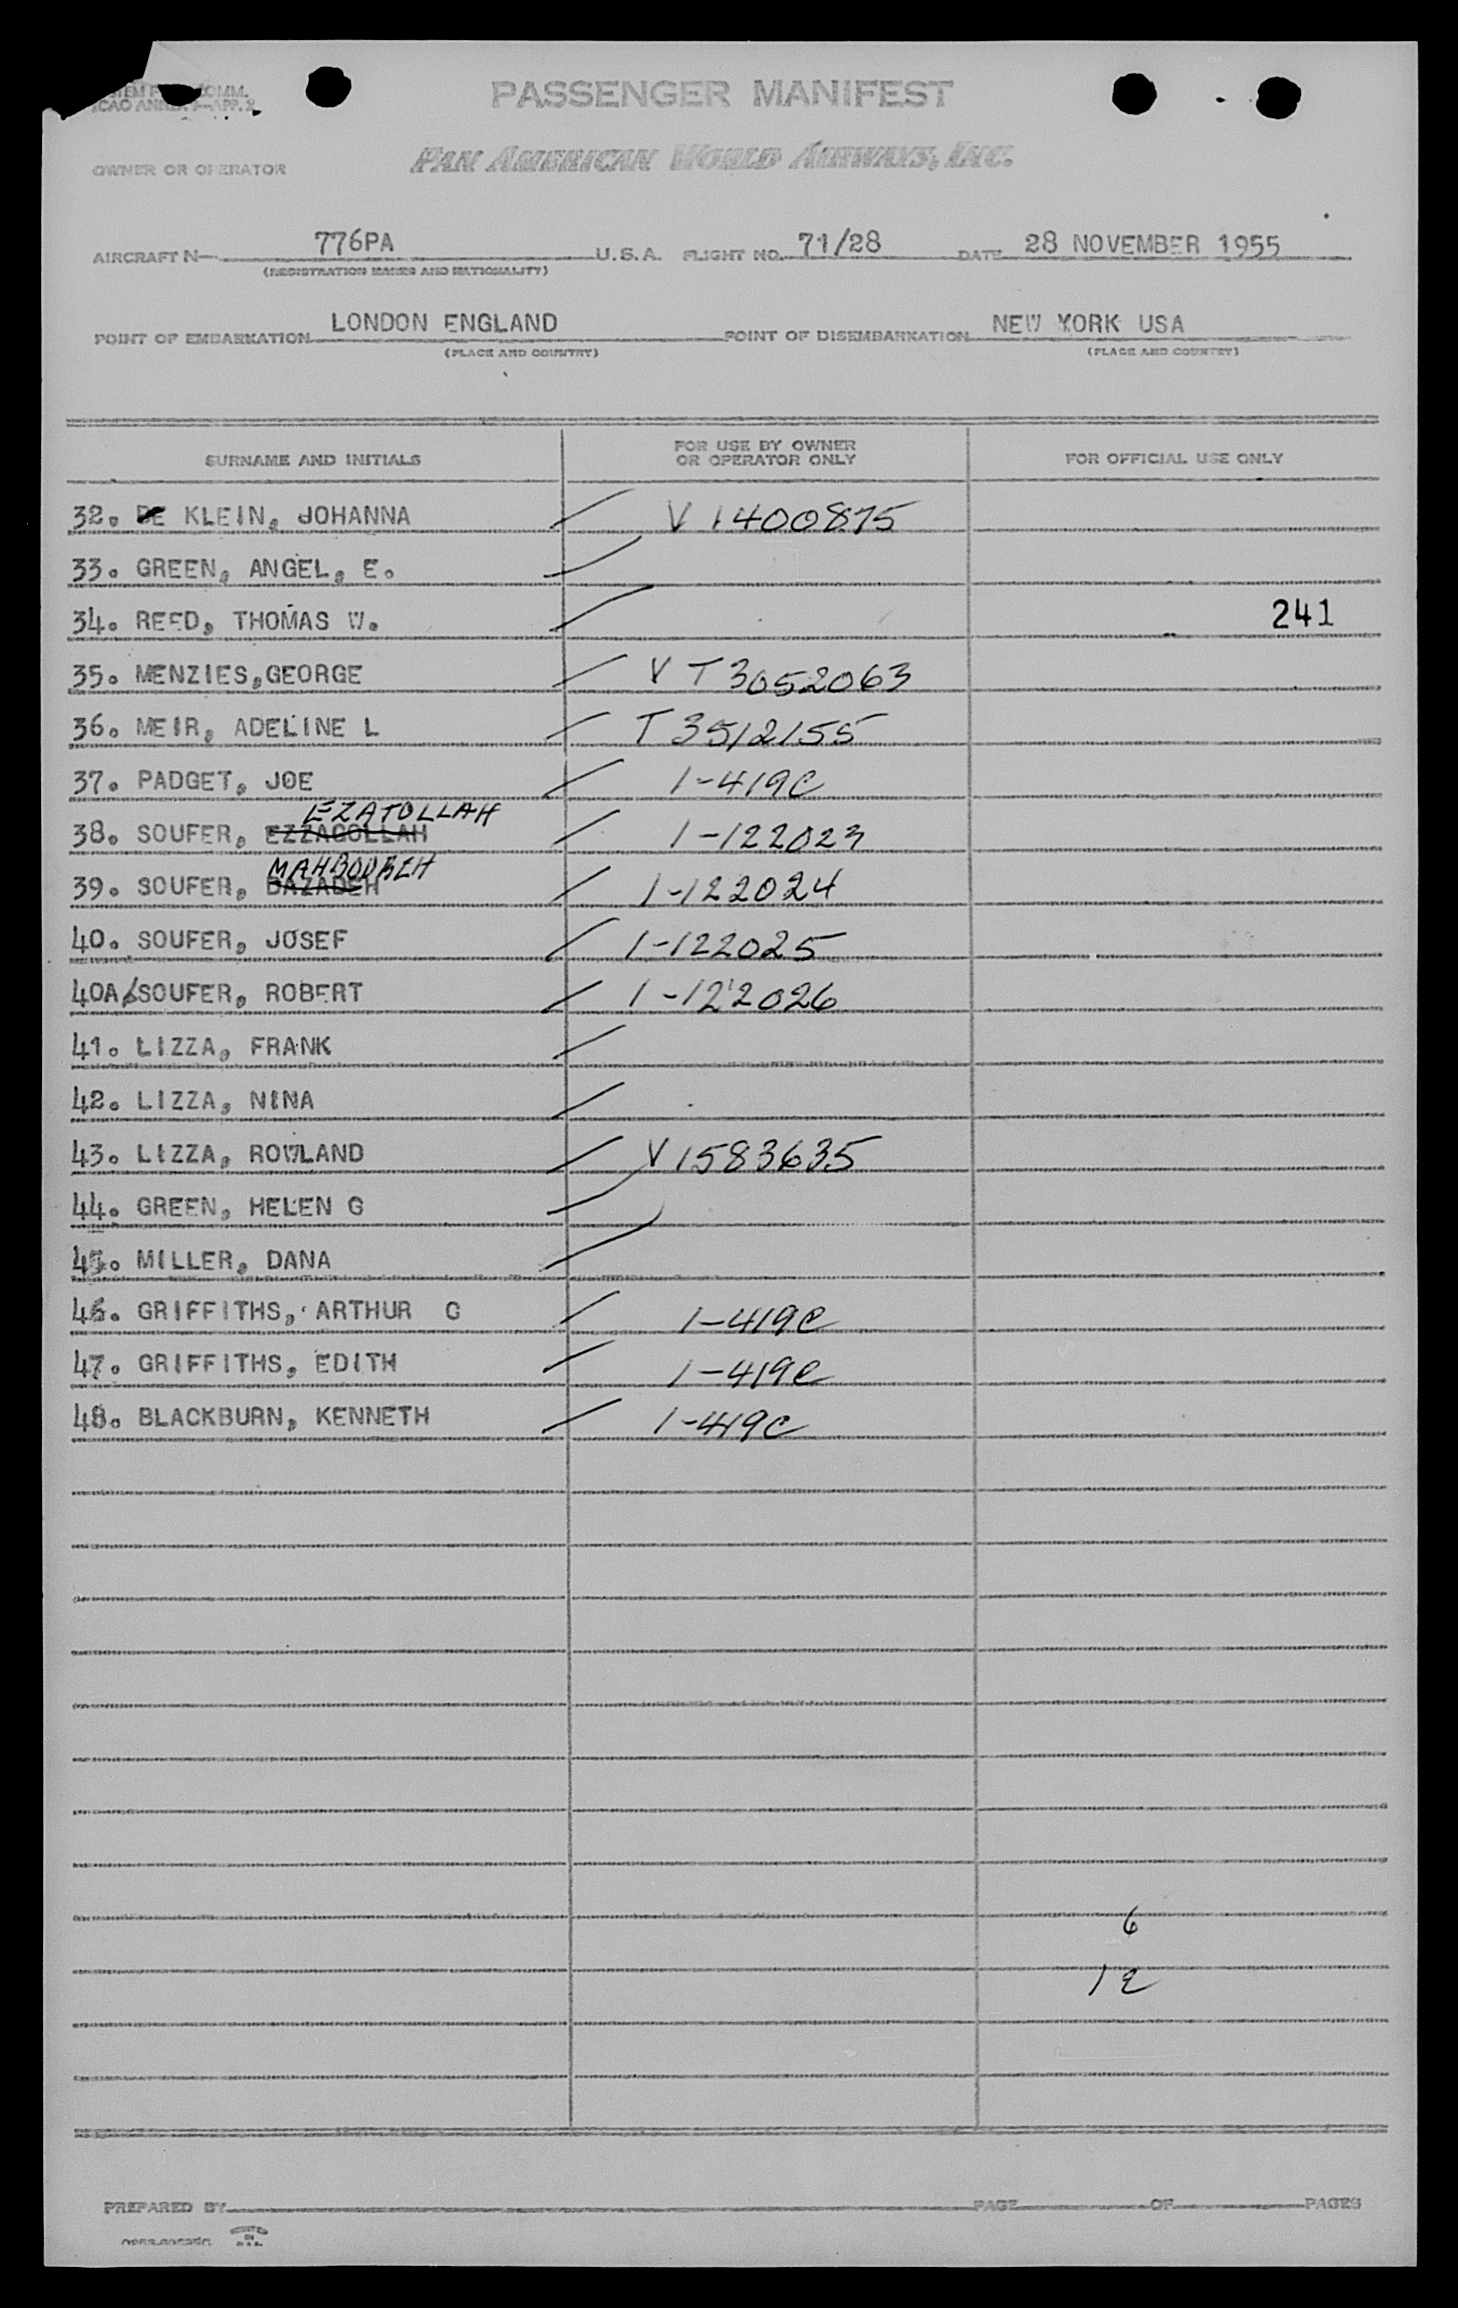 COMM.
ICAO ANNEX 9—APP. 2
PASSENGER MANIFEST
OWNER OR OPERATOR PAN AMERICAN WORLD AIRWAYS, INC.
AIRCRAFT N— 776PA U.S.A. FLIGHT NO. 71/28 DATE 28 NOVEMBER 1955
(REGISTRATION MARKS AND NATIONALITY)
POINT OF EMBARKATION LONDON ENGLAND POINT OF DISEMBARKATION NEW YORK USA
(PLACE AND COUNTRY) (PLACE AND COUNTRY)
SURNAME AND INITIALS FOR USE BY OWNER OR OPERATOR ONLY FOR OFFICIAL USE ONLY
32. DE KLEIN, JOHANNA / V 1400875
33. GREEN, ANGEL, E. /
34. REED, THOMAS W. / 241
35. MENZIES,GEORGE / V T3052063
36. MEIR, ADELINE L / T3512155
37. PADGET, JOE / 1-419C
EZATOLLAH
38. SOUFER, EZZAGOLLAH / 1-122023
MAHBOUBEH
39. SOUFER, DAZADEH / 1-122024
40. SOUFER, JOSEF / 1-122025
40A SOUFER, ROBERT / 1-122026
41. LIZZA, FRANK /
42. LIZZA, NINA /
43. LIZZA, ROWLAND / V1583635
44. GREEN, HELEN G /
45. MILLER, DANA /
46. GRIFFITHS, ARTHUR G / 1-419C
47. GRIFFITHS, EDITH / 1-419C
48. BLACKBURN, KENNETH / 1-419C
6
12
PREPARED BY PAGE OF PAGES
PRINTED IN U.S.A.